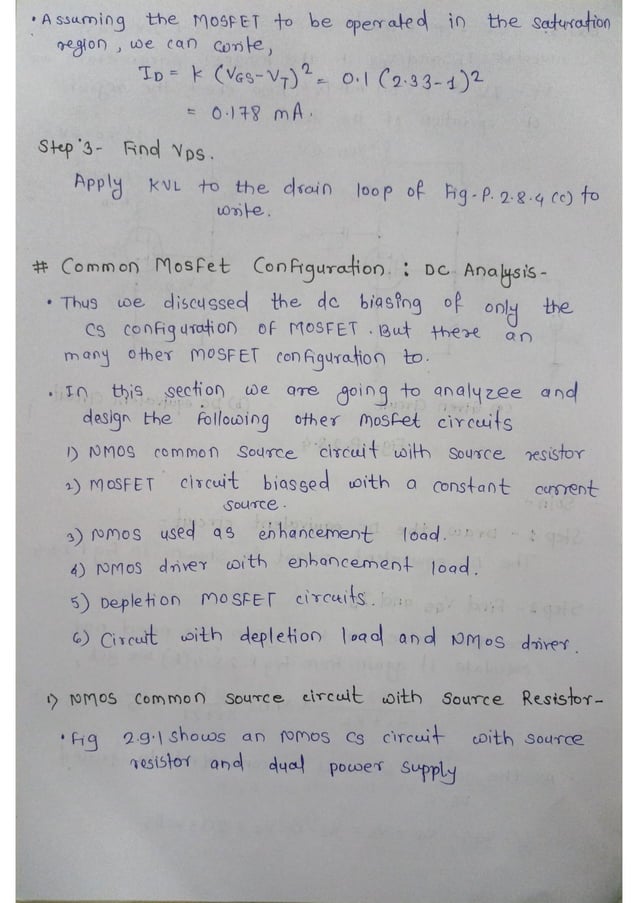 • Assuming the MOSFET to be operated in the saturation
region, we can write,
ID = k (VGS-VT)² = 0.1 (2.33-1)2
= 0.178 mA.
Step 3- Find VDS.
Apply KVL to the drain loop of Fig-P. 2.8.4 (c) to
write.
# Common Mosfet Configuration : DC Analysis-
• Thus we discussed the dc biasing of only the
CS configuration of MOSFET. But there an
many other MOSFET configuration to.
• In this section we are going to analyzee and
design the following other mosfet circuits
1) NMOS common source circuit with source resistor
2) MOSFET circuit biassed with a constant current
source.
3) NMOS used as enhancement load.
4) NMOS driver with enhancement load.
5) Depletion MOSFET circuits.
6) Circuit with depletion load and NMOS driver.
1) NMOS common source circuit with Source Resistor-
• Fig 2.9.1 shows an NMOS CS circuit with source
resistor and dual power supply